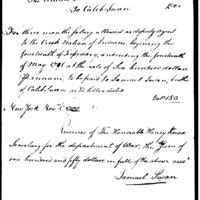 To Caleb Swan
For three months salary allowed as deputy agent
to the Creek Nation of Indians, beginning the
fourteenth of February, and ending the fourteenth
of May 1791 at the rate of six hundred dollars
Annum, to be paid to Samuel Swan, brother
of Caleb Swan and to
New York Nov
Received of The Honorable Henry Knox
Secretary for the department of War, the Sum of
one hundred and fifty dollars, in full of the above
Samuel Swan